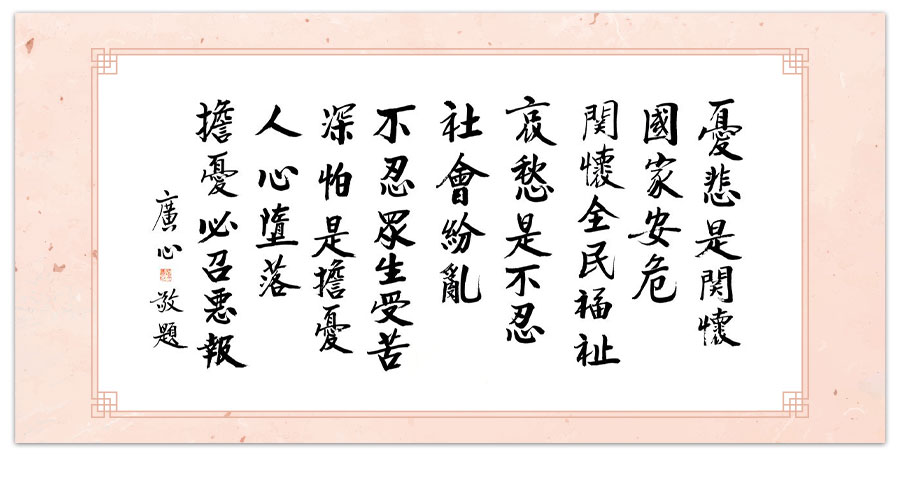 憂悲是関懷
國家安危
関懷全民福祉
哀愁是不忍
社會紛亂
不忍眾生受苦
深怕是擔憂
人心墮落
擔憂必召惡報
廣心 敬題